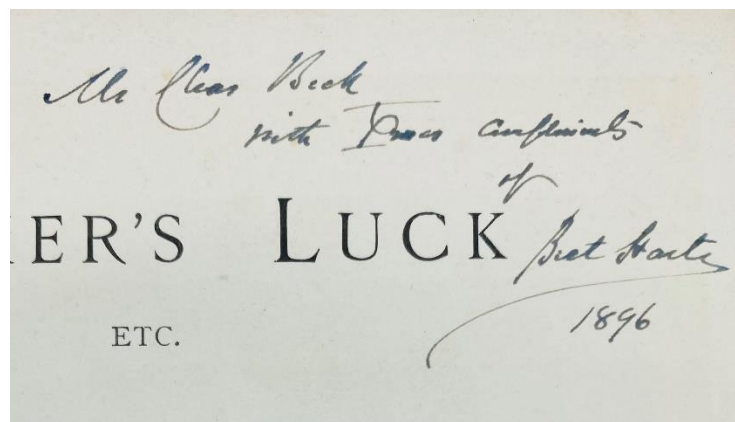 Mr Chas Beck
with Xmas compliments
of
ER'S LUCK
Bret Harte
1896
ETC.